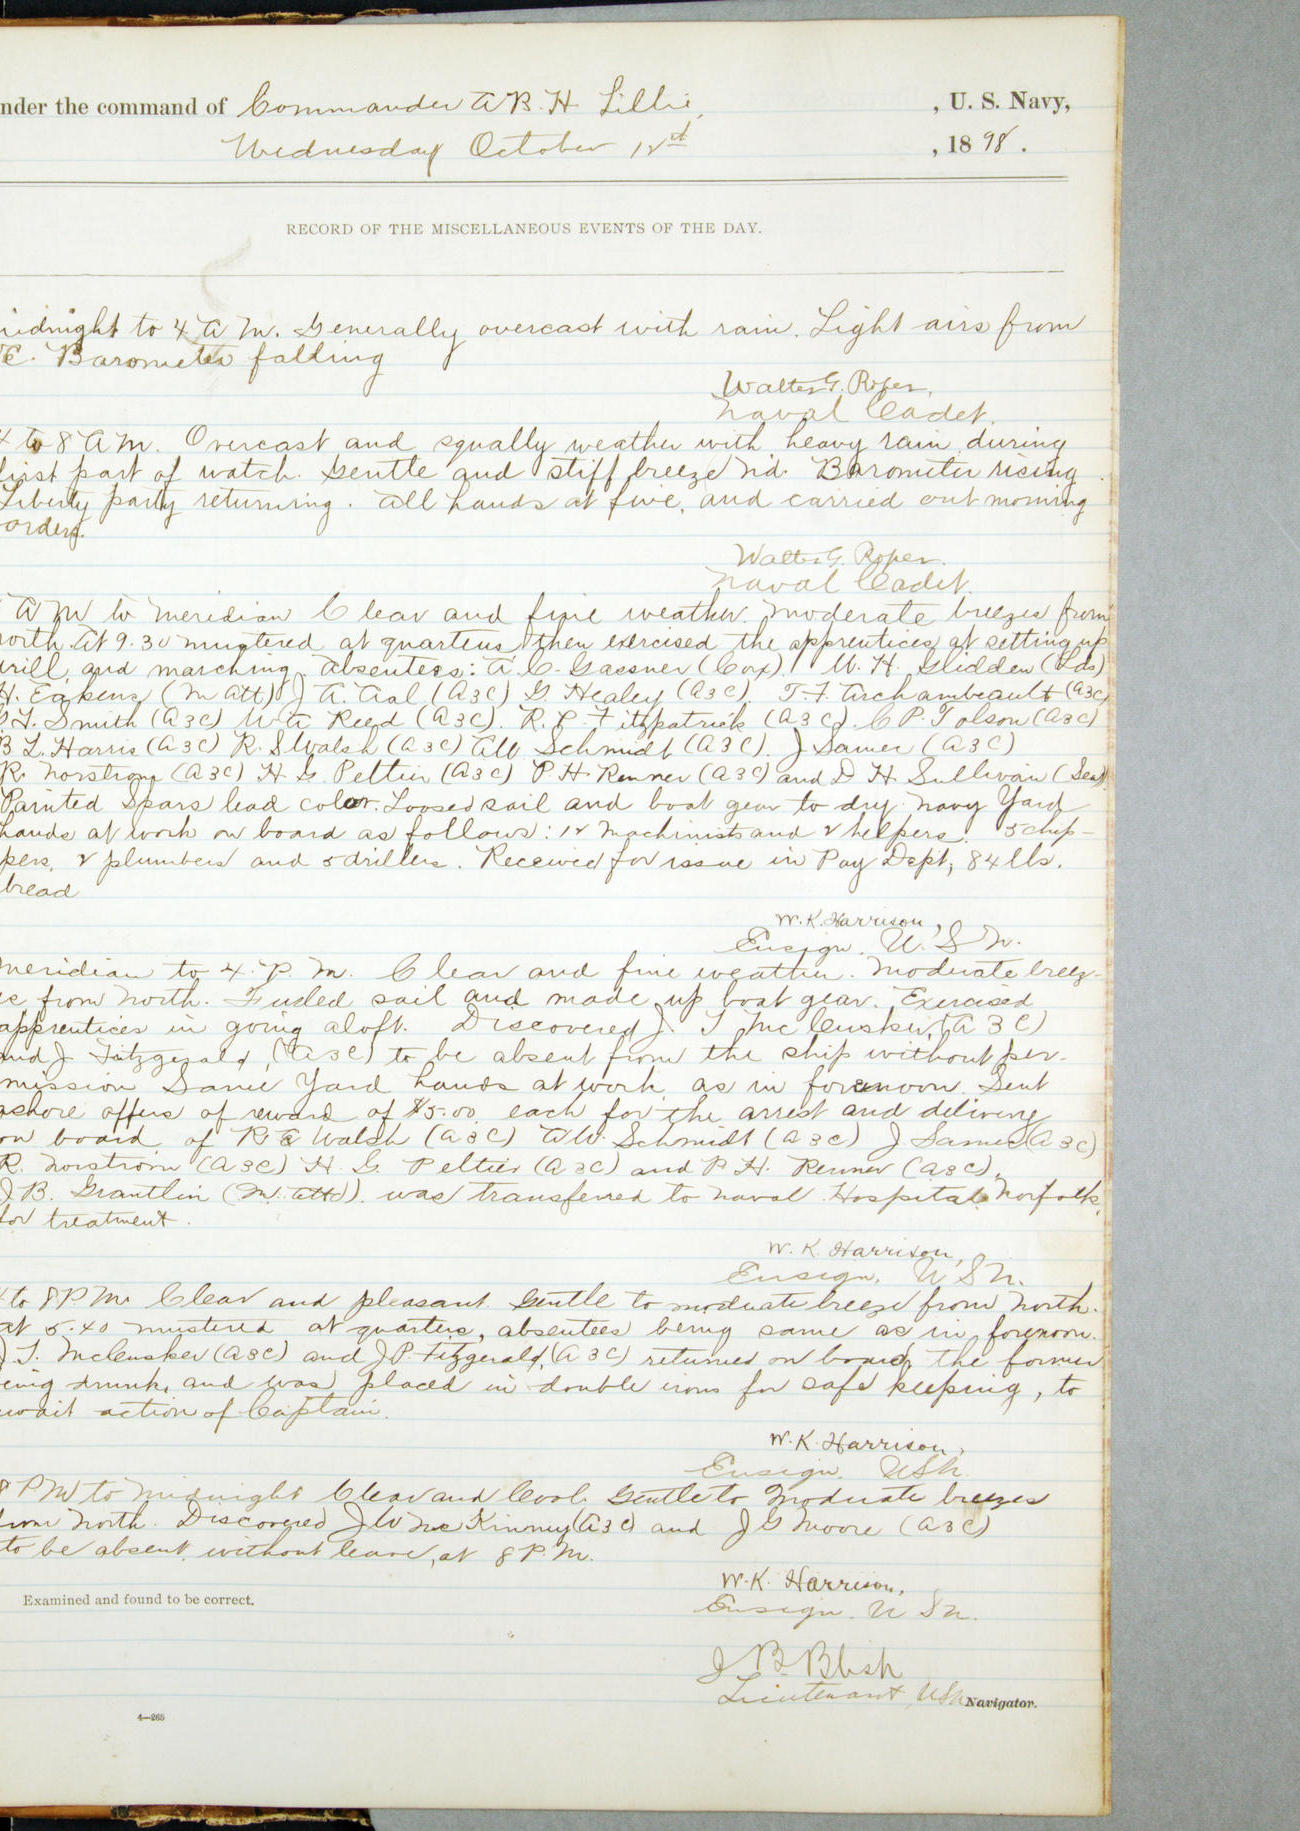 nder the command of Commander A B. H. Lillie, , U. S. Navy,
Wednesday October 12th , 1898.
RECORD OF THE MISCELLANEOUS EVENTS OF THE DAY.
idnight to 4 A M. Generally overcast with rain. Light airs from
E. Barometer falling
Walter G. Roper,
Naval Cadet.
4 to 8 A M. Overcast and squally weather with heavy rain during
first part of watch. Gentle and stiff breeze N'd. Barometer rising
Liberty party returning. All hands at five, and carried out morning
orders.
Walter G. Roper.
Naval Cadet.
A M to Meridian Clear and fine weather. Moderate breezes from
north. At 9.30 mustered at quarters, then exercised the apprentices at setting up
drill, and marching. Absentees: A. C. Gassner (Cox) W. H. Glidden (Lds)
H. Eakens (M Att) J A. Aal (A3C) G Healey (A3C) T. F. Archambeault (A3C)
G. H. Smith (A3C) W A Reed (A3C). R. P. Fitzpatrick (A3C). C P. Tolson (A3C)
B L. Harris (A3C) R. S Walsh (A3C) AW Schmidt (A3C). J Samer (A3C)
R. Norstrom (A3C) H G. Peltier (A3C) P. H. Renner (A3C) and D H. Sullivan (Sea)
Painted Spars lead color. Loosed sail and boat gear to dry. Navy Yard
hands at work on board as follows: 12 Machinists and 2 helpers. 5 chip-
pers, 2 plumbers and 5 drillers. Received for issue in Pay Dept, 84 lbs.
bread
W. K. Harrison,
Ensign. U. S N.
Meridian to 4. P. M. Clear and fine weather. Moderate breez-
es from North. Furled sail and made up boat gear. Exercised
apprentices in going aloft. Discovered J. T McCusker, (A3C)
and J. Fitzgerald, (A3C) to be absent from the ship without per-
mission Same Yard hands at work, as in forenoon. Sent
ashore offers of reward of $5.00 each for the arrest and delivery
on board of R S Walsh (A3C) AW. Schmidt (A3C) J. Samer (A3C)
R. Norstrom (A3C) H. G. Peltier (A3C) and P H. Renner (A3C).
J B. Grantlin (M. Att) was transferred to Naval Hospital Norfolk,
for treatment.
W. K. Harrison,
Ensign, U S N.
4 to 8 P M. Clear and pleasant. Gentle to moderate breeze from North.
at 5.40 mustered at quarters, absentees being same as in forenoon.
J. T. McCusker (A3C) and J P. Fitzgerald, (A3C) returned on board, the former
eing drunk, and was placed in double irons for safe keeping, to
wait action of Captain.
W. K. Harrison,
Ensign. USN.
8 P M to Midnight Clear and Cool. Gentle to Moderate breezes
from North. Discovered J W McKinney (A3C) and J G Moore (A3C)
to be absent without leave, at 8 P. M.
W. K. Harrison,
Ensign. U S N.
Examined and found to be correct.
J B Blish
Lieutenant, USN Navigator.
4—265